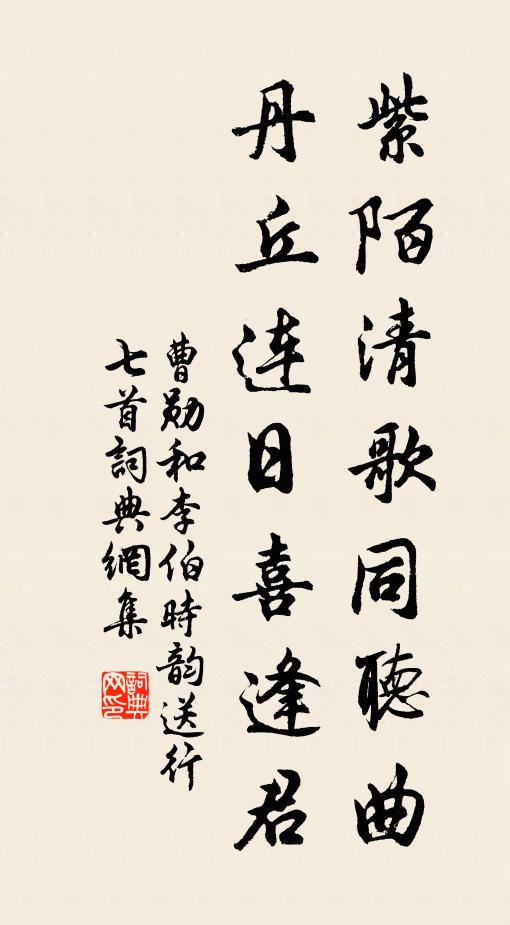 紫陌清歌同聽曲
丹丘連日喜逢君
曹勛和李伯時韵送行
七首詞典網集
詞典網印